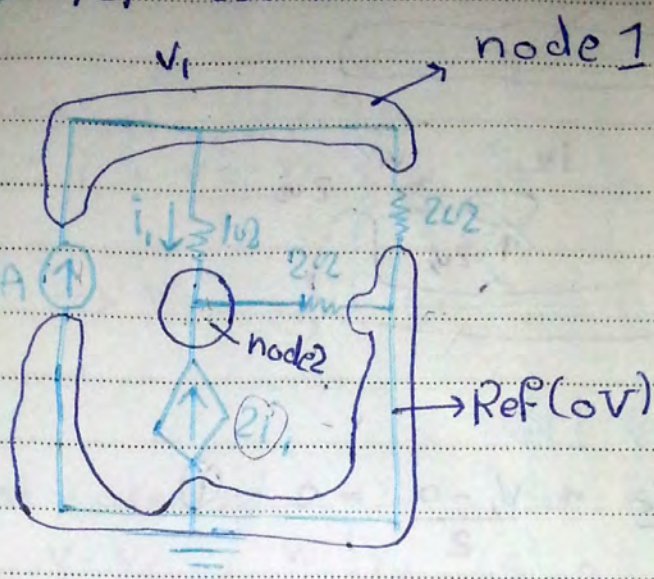 node 1
V₁
i₁
1Ω
2Ω
2Ω
A
node2
2i₁
Ref(0V)